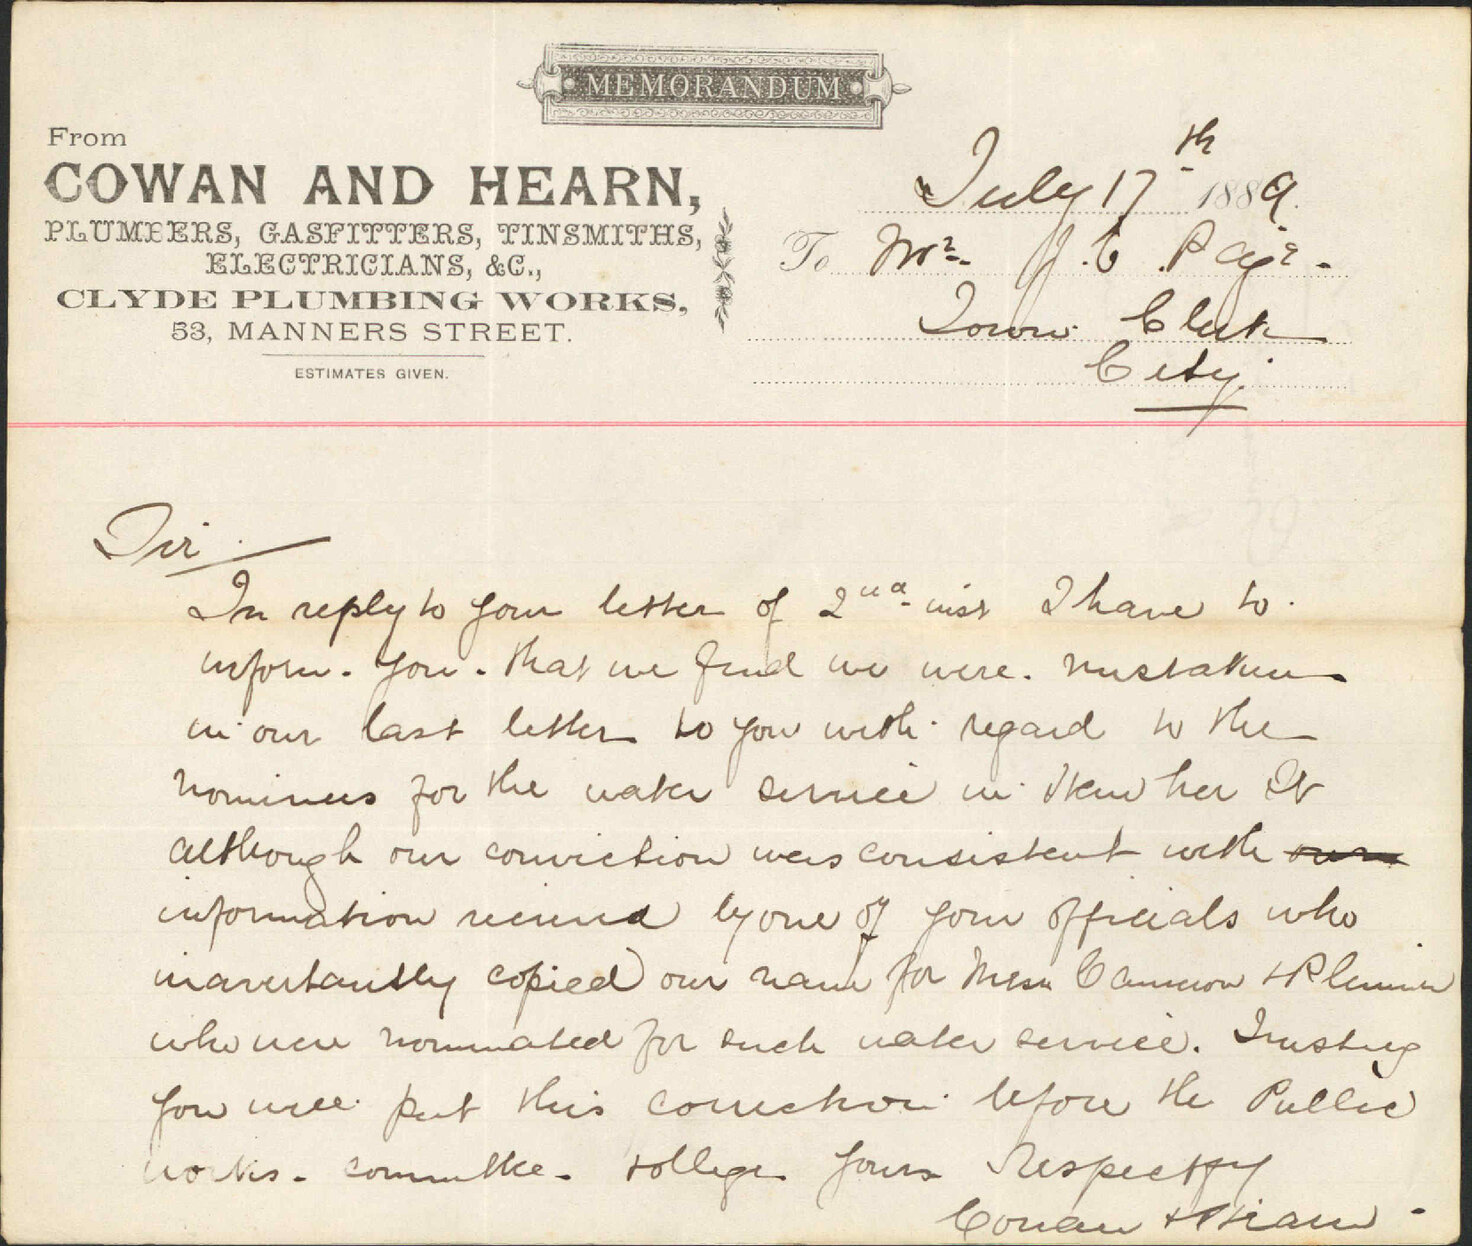 MEMORANDUM
From
COWAN AND HEARN,
PLUMBERS, GASFITTERS, TINSMITHS,
ELECTRICIANS, &C.,
CLYDE PLUMBING WORKS,
53, MANNERS STREET.
ESTIMATES GIVEN.
July 17th 1889.
To Mr. J. C. Page
Town Clerk
City.
Sir.
In reply to your letter of 2nd inst I have to
inform you that we find we were mistaken
in our last letter to you with regard to the
nominees for the water service in St
although our conviction was consistent with our
information received by one of your officials who
inavertantly copied our name for Messrs Cameron &
who were nominated for such water service. Trusting
you will put this correction before the Public
works committee & oblige Yours Respectfy
Cowan & Hearn